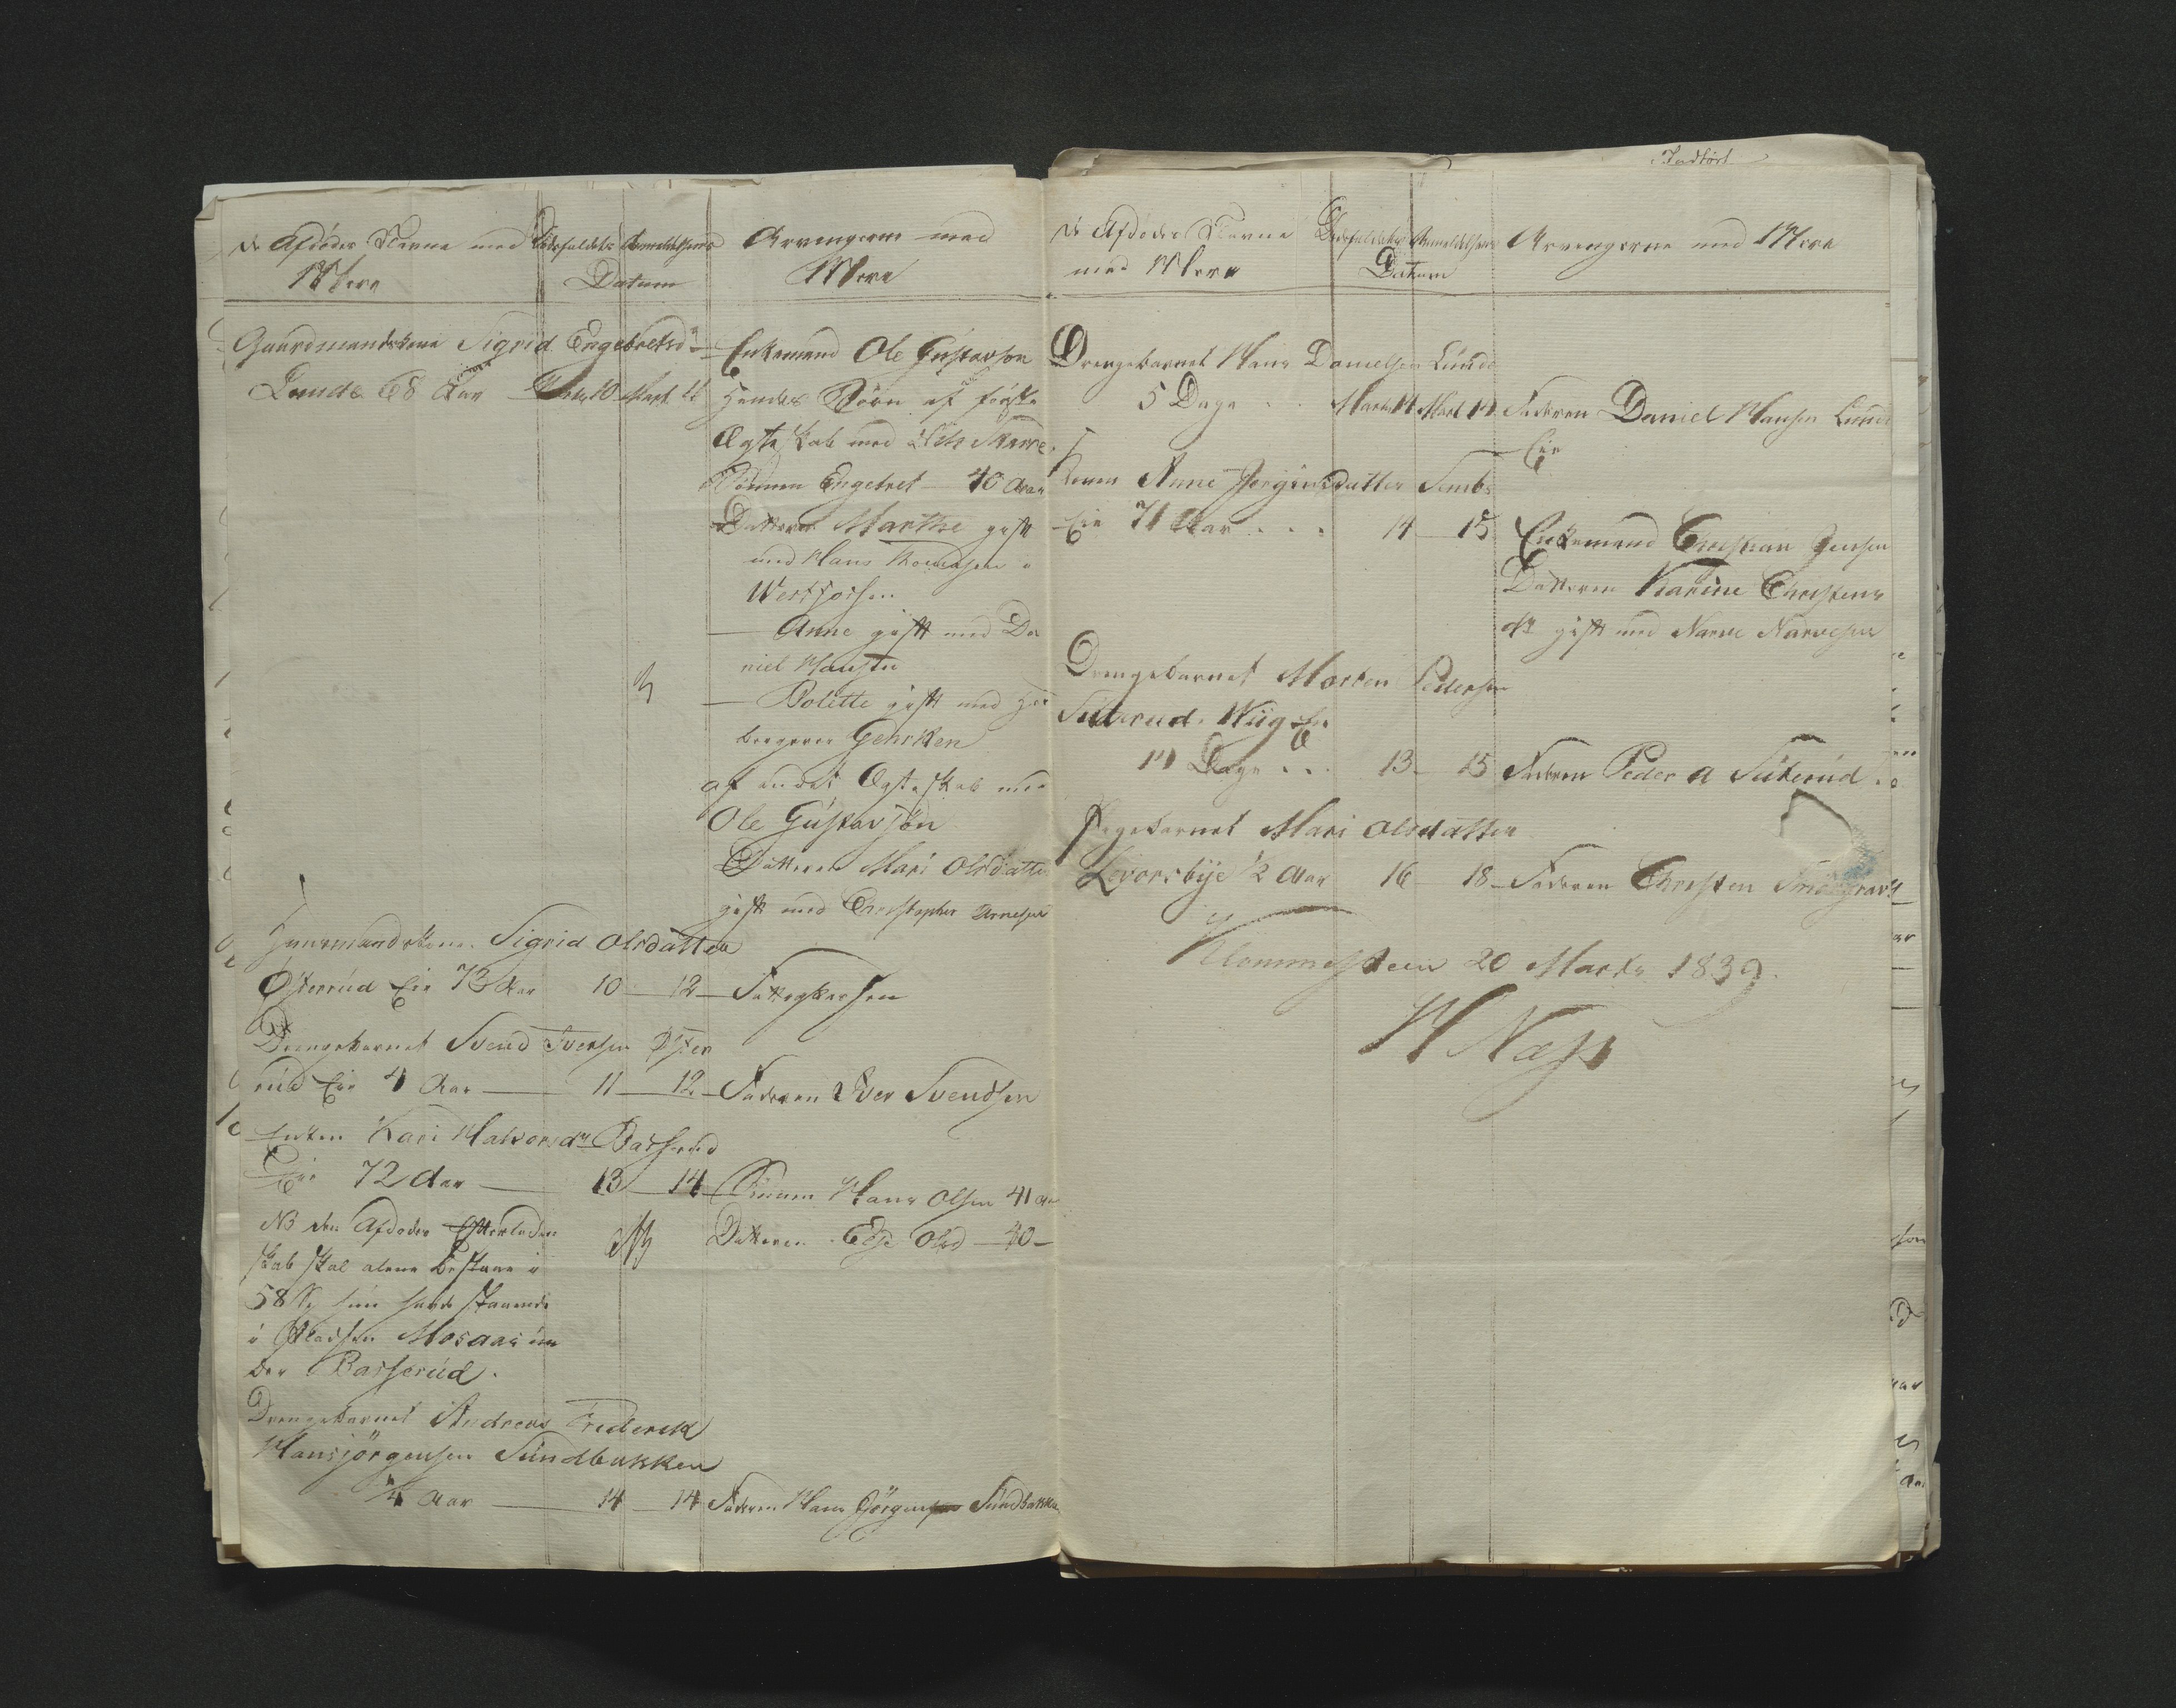 de Afdødes Navne med Dödsfaldets Anmeldelsens Arvingerne med
Mere Datum Mere
Gaardmandskone Sigrid Engebretsdr
Lunde 68 Aar Marts 10 Marts 11
Enkemand Ole Gustavson
Hendes Börn af förste
Ægteskab med
Sönnen Engebret 40 Aar
Datteren Marthe gift
med Hans Thomasen i
Westfossen
— Anne gift med Da
niel Hansen
— Bolitte gift med
Gehrken
af andet Ægteskab med
Ole Gustavsön
Datteren Mari Olsdatter
gift med Christopher Arnesen
Huusmandskone Sigrid Olsdatter
Österud Eie 73 Aar 10 — 12 — Fattigkassen
Drengebarnet Svend Iversen Öster
rud Eie 4 Aar — 11 — 12 — Faderen Iver Svendsen
Enken Kari Halvorsdr Basserud
Eie 72 Aar — 13 — 14 — Sönnen Hans Olsen 41 Aar
Datteren Else Olsd — 40 —
NB den Afdödes Efterladen
skab skal alene bestaae i
58 hun havde staaende
i Pladsen Mosaas un
der Basserud.
Drengebarnet Andreas Frederik
Hansjörgensen Sundbakken
1/4 Aar — 14 — 14 Faderen Hans Jörgensen Sundbakken
Indført
de Afdödes Navne Dödsfaldets Anmeldelsens Arvingerne med Mere
med Mere Datum
Drengebarnet Hans Danielsen Lunde
5 Dage Marts 14 Marts 14 Faderen Daniel Hansen Lunde
Eie
Konen Anne Jörgensdatter Sembs
Eie 71 Aar . . . 14 — 15 Enkemand Christian Jensen
Datteren Karine Christens
dr gift med Narve Narvesen
Drengebarnet Morten Pedersen
Suterud. Wiig Eie
14 Dage . . . 13 — 15 Faderen Peder A Suterud.
Pigebarnet Mari Olsdatter
Levorsbye 1/2 Aar 16 — 18 — Faderen Christen
Klommesteen 20 Marts 1839.
H Næss